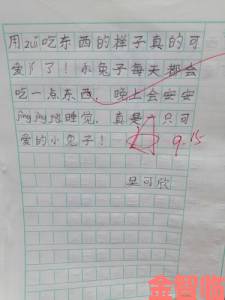 用zuǐ吃东西的样子真的可
爱了了！小兔子每天都会
吃一点东西，晚上会安安
jìngjìng地睡觉，真是一只可
爱的小兔子！
9.15
吴可欣
金智临